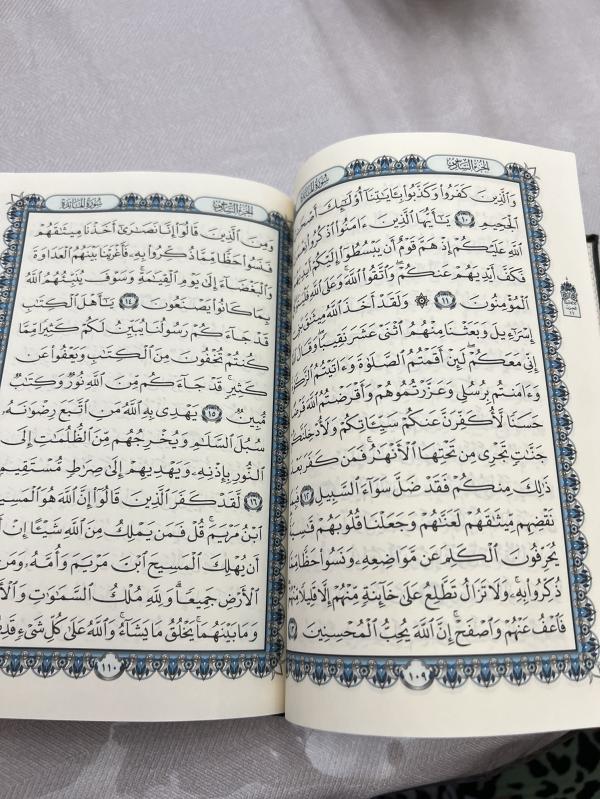 الجزء السادس
سورة المائدة
وَالَّذِينَ كَفَرُوا وَكَذَّبُوا بِآيَاتِنَا أُولَٰئِكَ
الْجَحِيمِ ١٠ يَا أَيُّهَا الَّذِينَ آمَنُوا اذْكُرُوا
اللَّهِ عَلَيْكُمْ إِذْ هَمَّ قَوْمٌ أَن يَبْسُطُوا إِلَيْكُمْ
فَكَفَّ أَيْدِيَهُمْ عَنكُمْ ۖ وَاتَّقُوا اللَّهَ ۚ وَعَلَى اللَّهِ
الْمُؤْمِنُونَ ١١ ۞ وَلَقَدْ أَخَذَ اللَّهُ
إِسْرَائِيلَ وَبَعَثْنَا مِنْهُمُ اثْنَيْ عَشَرَ نَقِيبًا ۖ وَقَالَ
إِنِّي مَعَكُمْ ۖ لَئِنْ أَقَمْتُمُ الصَّلَاةَ وَآتَيْتُمُ
وَآمَنتُم بِرُسُلِي وَعَزَّرْتُمُوهُمْ وَأَقْرَضْتُمُ اللَّهَ
حَسَنًا لَّأُكَفِّرَنَّ عَنكُمْ سَيِّئَاتِكُمْ
جَنَّاتٍ تَجْرِي مِن تَحْتِهَا الْأَنْهَارُ ۚ فَمَن كَفَرَ بَعْدَ
ذَٰلِكَ مِنكُمْ فَقَدْ ضَلَّ سَوَاءَ السَّبِيلِ ١٢
نَقْضِهِم مِّيثَاقَهُمْ لَعَنَّاهُمْ وَجَعَلْنَا قُلُوبَهُمْ
يُحَرِّفُونَ الْكَلِمَ عَن مَّوَاضِعِهِ ۙ وَنَسُوا حَظًّا
ذُكِّرُوا بِهِ ۚ وَلَا تَزَالُ تَطَّلِعُ عَلَىٰ خَائِنَةٍ مِّنْهُمْ إِلَّا قَلِيلًا
فَاعْفُ عَنْهُمْ وَاصْفَحْ ۚ إِنَّ اللَّهَ يُحِبُّ الْمُحْسِنِينَ ١٣
١٠٩
الجزء السادس
سورة المائدة
وَمِنَ الَّذِينَ قَالُوا إِنَّا نَصَارَىٰ أَخَذْنَا مِيثَاقَهُمْ
فَنَسُوا حَظًّا مِّمَّا ذُكِّرُوا بِهِ فَأَغْرَيْنَا بَيْنَهُمُ الْعَدَاوَةَ
وَالْبَغْضَاءَ إِلَىٰ يَوْمِ الْقِيَامَةِ ۚ وَسَوْفَ يُنَبِّئُهُمُ اللَّهُ
بِمَا كَانُوا يَصْنَعُونَ ١٤ يَا أَهْلَ الْكِتَابِ
قَدْ جَاءَكُمْ رَسُولُنَا يُبَيِّنُ لَكُمْ كَثِيرًا مِّمَّا
كُنتُمْ تُخْفُونَ مِنَ الْكِتَابِ وَيَعْفُو عَن
كَثِيرٍ ۚ قَدْ جَاءَكُم مِّنَ اللَّهِ نُورٌ وَكِتَابٌ
مُّبِينٌ ١٥ يَهْدِي بِهِ اللَّهُ مَنِ اتَّبَعَ رِضْوَانَهُ
سُبُلَ السَّلَامِ وَيُخْرِجُهُم مِّنَ الظُّلُمَاتِ إِلَى
النُّورِ بِإِذْنِهِ وَيَهْدِيهِمْ إِلَىٰ صِرَاطٍ مُّسْتَقِيمٍ
١٦ لَّقَدْ كَفَرَ الَّذِينَ قَالُوا إِنَّ اللَّهَ هُوَ الْمَسِيحُ
ابْنُ مَرْيَمَ ۚ قُلْ فَمَن يَمْلِكُ مِنَ اللَّهِ شَيْئًا إِنْ
أَن يُهْلِكَ الْمَسِيحَ ابْنَ مَرْيَمَ وَأُمَّهُ وَمَن
الْأَرْضِ جَمِيعًا ۗ وَلِلَّهِ مُلْكُ السَّمَاوَاتِ
وَمَا بَيْنَهُمَا ۚ يَخْلُقُ مَا يَشَاءُ ۚ وَاللَّهُ عَلَىٰ كُلِّ شَيْءٍ
١١٠